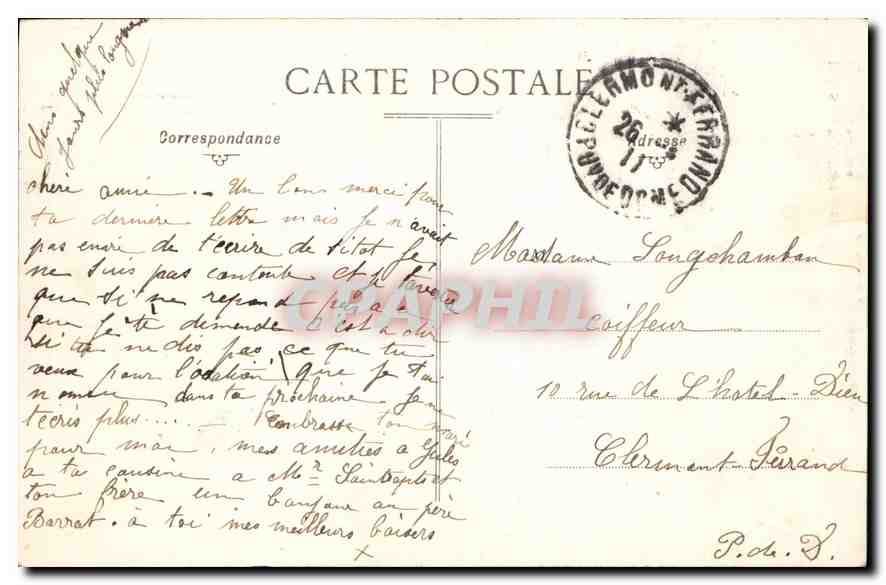 Dans quelque
jours plus longue
CARTE POSTALE
Correspondance
Adresse
CLERMONT-FERRAND
26 *
11
PUY DE DOME
chere amie. - Un bons merci pour
ta dernière lettre mais je n'avait
pas envie de t'écrire de sitot Je
ne suis pas contente et je t'avertie
que si ne repond pas a ce
que je te demande c'est a dir
si tu ne dis pas ce que tu
veux pour l'ocation que je t'ai
nommé dans ta prochaine Je ne
tecris plus..... - Embrasse ton mari
pour moi, mes amitiés a Jules
a ta cousine a Mr et
ton frère un bonjour au père
Barrat. à toi mes meilleurs baisers
x
CPAPHIL
Madame Longchambon
Coiffeur
10 rue de L'hotel-Dieu
Clermont-Ferrand
P. de. D.